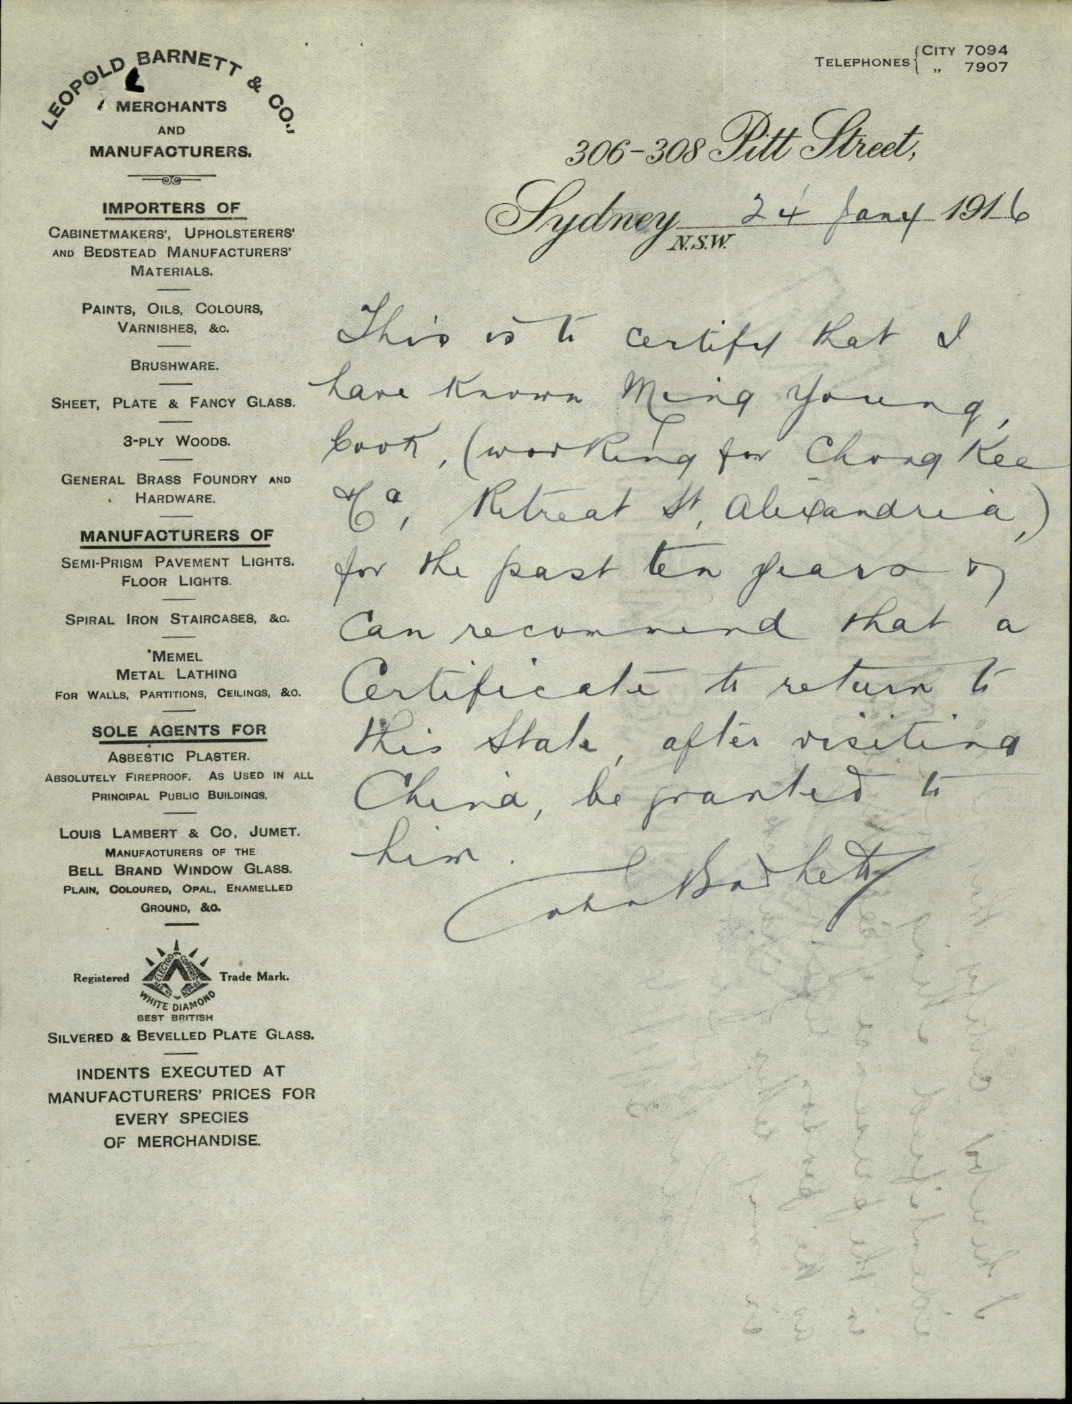 LEOPOLD BARNETT & CO.,
MERCHANTS
AND
MANUFACTURERS.
IMPORTERS OF
CABINETMAKERS', UPHOLSTERERS'
AND BEDSTEAD MANUFACTURERS'
MATERIALS.
PAINTS, OILS, COLOURS,
VARNISHES, &c.
BRUSHWARE.
SHEET, PLATE & FANCY GLASS.
3-PLY WOODS.
GENERAL BRASS FOUNDRY AND
HARDWARE.
MANUFACTURERS OF
SEMI-PRISM PAVEMENT LIGHTS.
FLOOR LIGHTS.
SPIRAL IRON STAIRCASES, &c.
"MEMEL
METAL LATHING
FOR WALLS, PARTITIONS, CEILINGS, &c.
SOLE AGENTS FOR
ASBESTIC PLASTER.
ABSOLUTELY FIREPROOF. AS USED IN ALL
PRINCIPAL PUBLIC BUILDINGS.
LOUIS LAMBERT & CO, JUMET.
MANUFACTURERS OF THE
BELL BRAND WINDOW GLASS.
PLAIN, COLOURED, OPAL, ENAMELLED
GROUND, &c.
Registered Trade Mark.
WHITE DIAMOND
BEST BRITISH
SILVERED & BEVELLED PLATE GLASS.
INDENTS EXECUTED AT
MANUFACTURERS' PRICES FOR
EVERY SPECIES
OF MERCHANDISE.
TELEPHONES { CITY 7094
„ 7907
306-308 Pitt Street,
Sydney 24 Jany 1916
N.S.W.
This is to certify that I
have known Ming Young,
Cook, (working for Chong Kee
& Co, Retreat St, Alexandria,)
for the past ten years &
can recommend that a
Certificate to return to
this State, after visiting
China, be granted to
him.